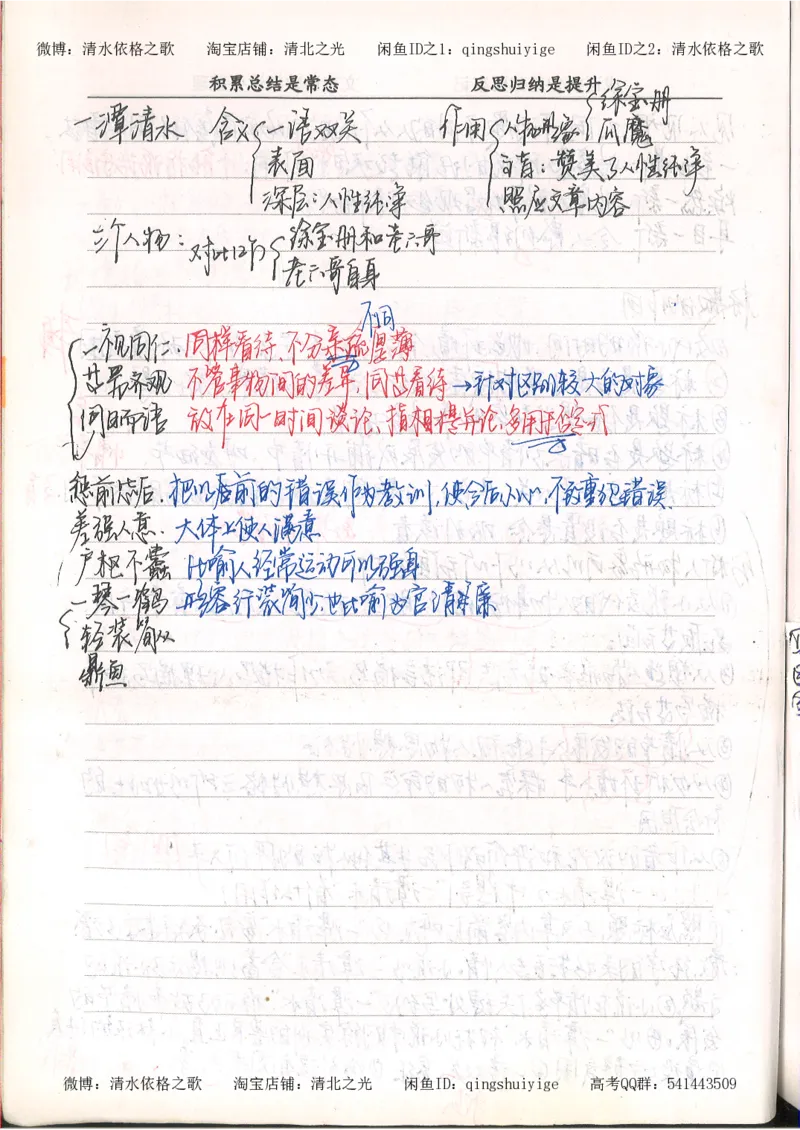 微博：清水依格之歌 淘宝店铺：清北之光 闲鱼ID之1：qingshuiyige 闲鱼ID之2：清水依格之歌
积累总结是常态 反思归纳是提升
一潭清水 含义 一语双关 作用 人物形象 徐宝册
瓜魔
表面 主旨：赞美了人性纯净
深层：人性纯净 照应文章内容
三个人物： 对比口 徐宝册和老六哥
老六哥自身
不同
一视同仁. 同样看待、不分亲疏厚薄
等量齐观 不管事物间的差异，同等看待→针对区别较大的对象
同日而语 放在同一时间谈论、指相提并论，多用于否定式
惩前毖后. 把以前的错误作为教训，使今后小心，不致重犯错误.
差强人意. 大体上使人满意
户枢不蠹 比喻人经常运动可以强身
一琴一鹤 形容行装简少，也比喻为官清廉
轻装简从
微博：清水依格之歌 淘宝店铺：清北之光 闲鱼ID：qingshuiyige 高考QQ群：541443509